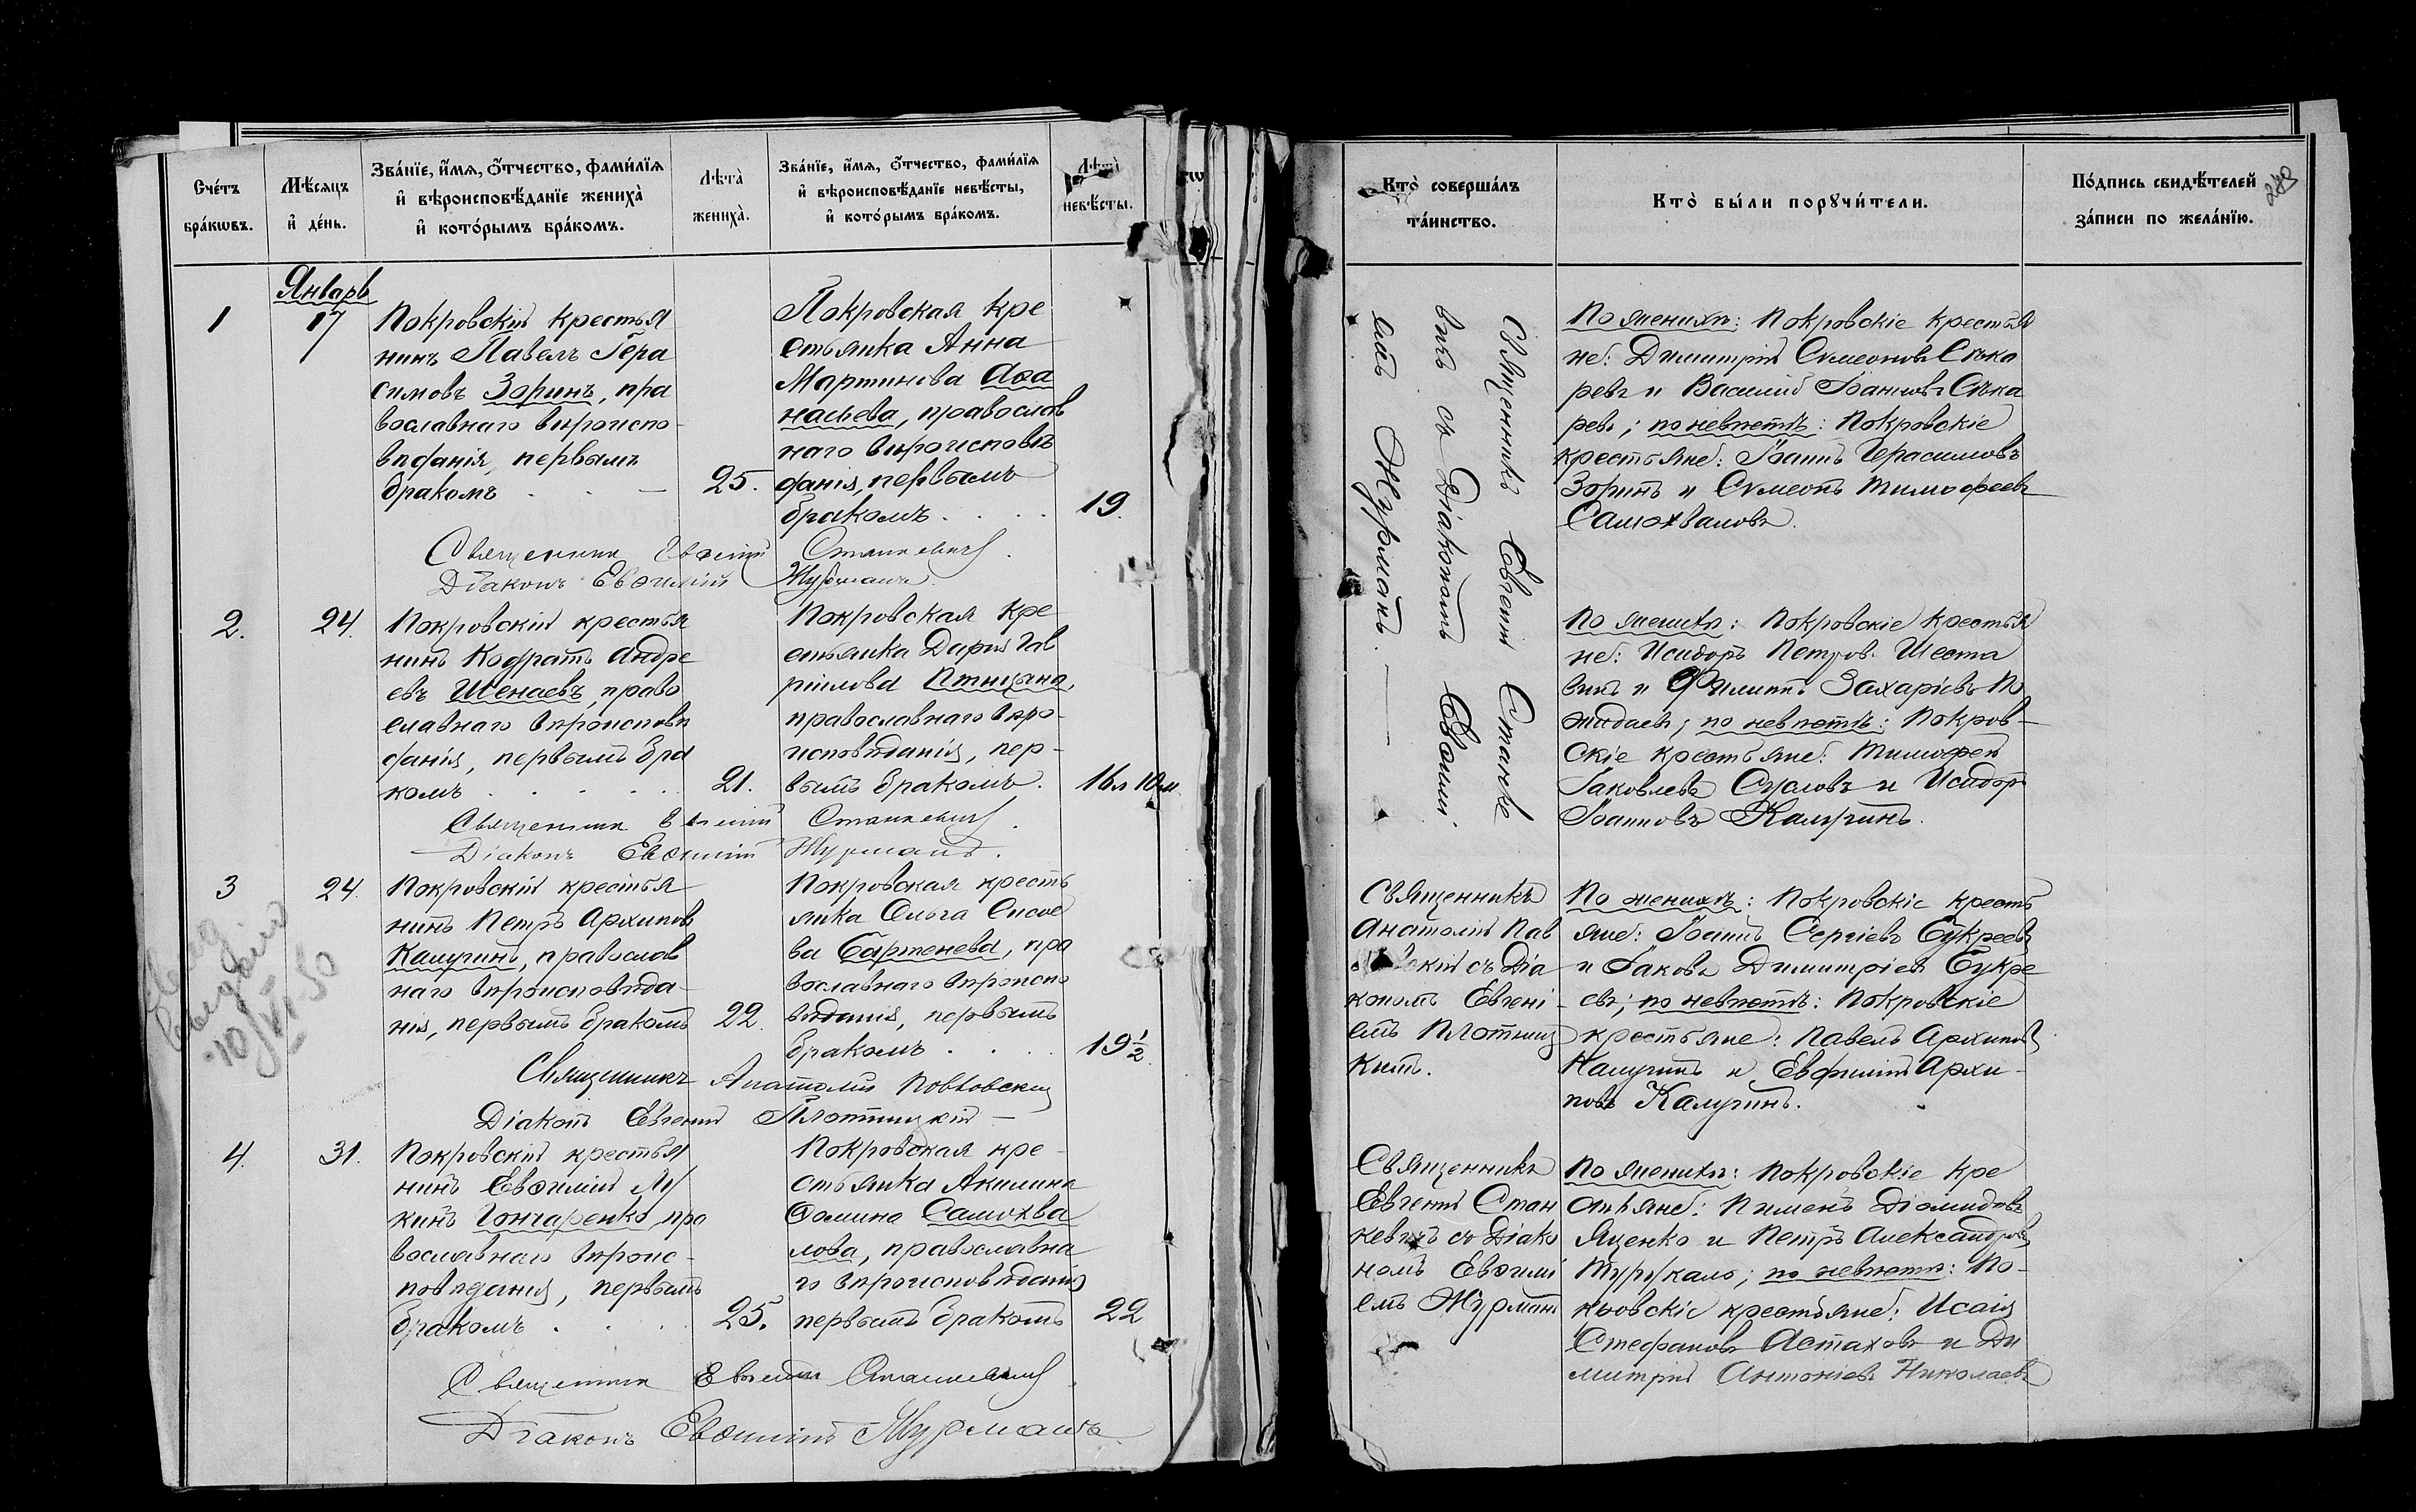 Счéтъ
брáкωвъ.
Мѣсяцъ
и҆ дéнь.
Звáнїе, и҆мя, ѻ҆тчество, фами́лїя
и҆ вѣроисповѣ́данїе женихà
и҆ котóрымъ брáкомъ.
Лѣтà
женихà.
Звáнїе, и҆мя, ѻ҆тчество, фами́лїя
и҆ вѣроисповѣ́данїе невѣ́сты,
и҆ котóрымъ брáкомъ.
Лѣтà
невѣ́сты.
Январь
1
17
Покровскій крестья
нинъ Павелъ Гера
симовъ Зоринъ, пра
вославнаго вѣроиспо-
вѣданія, первымъ
бракомъ
25.
Покровская кре
стьянка Анна
Мартинова Аѳа
насьева, православ
наго вѣроисповѣ
данія, первымъ
бракомъ
19.
Священникъ Евгеній Станкевичъ
Діаконъ Евѳимій Журманъ
2.
24.
Покровскій крестья
нинъ Кодратъ Андре
евъ Шенаевъ, право
славнаго вѣроисповѣ
данія, первымъ бра
комъ
21.
Покровская кре
стьянка Дарія Гав
ріилова Птицына,
православнаго вѣро-
исповѣданія, пер-
вымъ бракомъ.
16 л 10 м
Священникъ Евгеній Станкевичъ.
Діаконъ Евѳимій Журманъ.
3
24.
Покровскій крестья
нинъ Петръ Архиповъ
Калугинъ, православ
наго вѣроисповѣда-
нія, первымъ бракомъ
22.
Покровская кресть
янка Ольга Сисое
ва Бартенева, пра
вославнаго вѣроиспо
вѣданія, первымъ
бракомъ
19½
10/VI 50
Священникъ Анатолій Павловскій
Діаконъ Евгеній Плотницкій
4.
31.
Покровскій крестья
нинъ Евѳимій Лу
кинъ Гончаренко, пра
вославнаго вѣроис-
повѣданія, первымъ
бракомъ
25.
Покровская кре-
стьянка Акилина
Ѳомина Самохва
лова, православна
го вѣроисповѣданія
первымъ бракомъ
22
Священникъ Евгеній Станкевичъ.
Діаконъ Евѳимій Журманъ.
Ктò совершáлъ
тáинство.
Ктò бы́ли порꙋчи́тели.
Пóдпись свидѣ́телей
зáписи по желáнїю.
Священникъ Евгеній Станке
вичъ съ Діакономъ Евѳими-
емъ Журманъ.
По женихѣ: Покровскіе крестья
не: Димитрій Симеоновъ Сѣка
ревъ и Василій Іоанновъ Сѣка
ревъ; по невѣстѣ: Покровскіе
крестьяне: Іоаннъ Герасимовъ
Зоринъ и Симеонъ Тимофеевъ
Самохваловъ.
По женихѣ: Покровскіе крестья
не: Исидоръ Петровъ Шеста
винъ и Филиппъ Захаріевъ По
жидаевъ; по невѣстѣ: Покров-
скіе крестьяне: Тимофей
Іаковлевъ Сусловъ и Исидоръ
Іоанновъ Калугинъ.
Священникъ
Анатолій Пав
ловскій съ Діа
кономъ Евгені-
емъ Плотниц
кимъ.
По женихѣ: Покровскіе кресть
яне: Іоаннъ Сергіевъ Букреевъ
и Іаковъ Димитріевъ Букре
евъ; по невѣстѣ: Покровскіе
крестьяне: Павелъ Архиповъ
Калугинъ и Евфимій Архи-
повъ Калугинъ.
Священникъ
Евгеній Стан
кевичъ съ Діако
номъ Евѳимі
емъ Журманъ
По женихѣ: Покровскіе кре
стьяне: Пименъ Діомидовъ
Яценко и Петръ Александровъ
Турукало; по невѣстѣ: По-
кровскіе крестьяне: Исаія
Стефановъ Астаховъ и Ди
митрій Антоніевъ Николаевъ